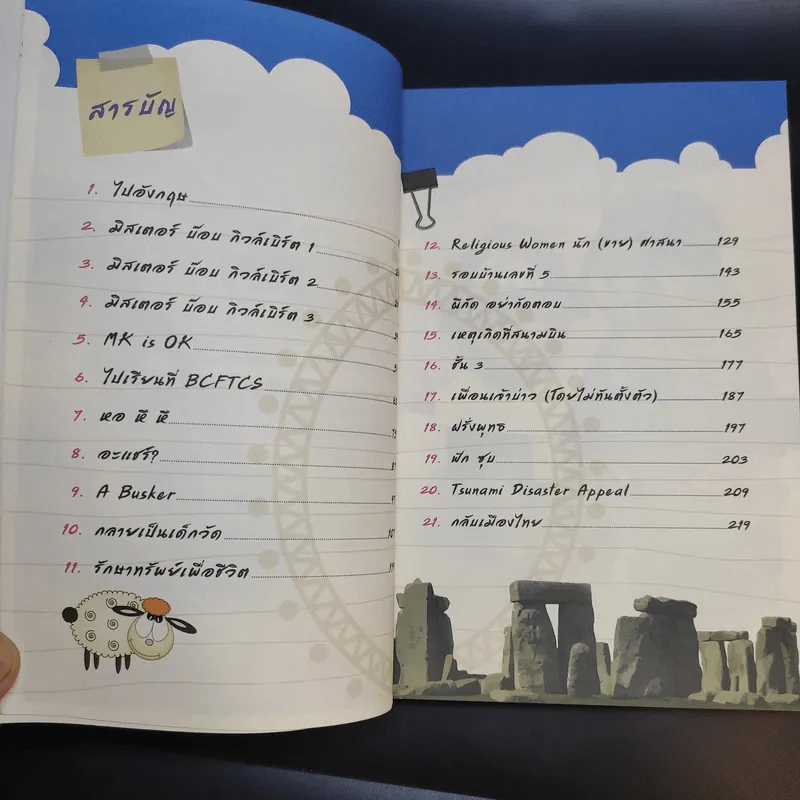 สารบัญ
1. ไปอังกฤษ
2. มิสเตอร์ บ๊อบ กิวล์เบิร์ต 1
3. มิสเตอร์ บ๊อบ กิวล์เบิร์ต 2
4. มิสเตอร์ บ๊อบ กิวล์เบิร์ต 3
5. MK is OK
6. ไปเรียนที่ BCFTCS
7. หอ หึ หึ
8. อะแชร์?
9. A Busker
10. กลายเป็นเด็กวัด
11. รักษาทรัพย์เพื่อชีวิต
12. Religious Women นัก (ขาย) ศาสนา 129
13. รอบบ้านเลขที่ 5 143
14. ผีกัด อย่ากัดตอบ 155
15. เหตุเกิดที่สนามบิน 165
16. ชั้น 3 177
17. เพื่อนเจ้าบ่าว (โดยไม่ทันตั้งตัว) 187
18. ฝรั่งพุทธ 197
19. ฟัก ซุบ 203
20. Tsunami Disaster Appeal 209
21. กลับเมืองไทย 219